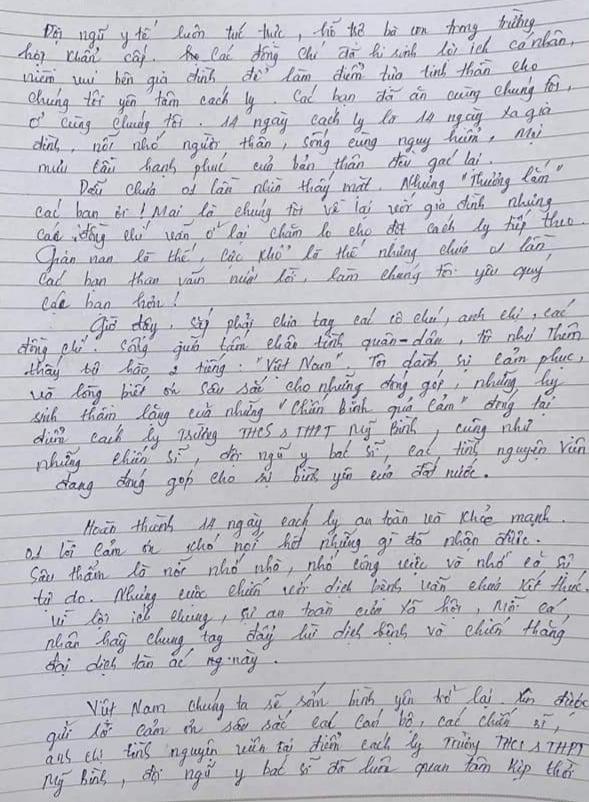 Đội ngũ y tế luôn túc trực, hỗ trợ bà con trong trường
hợp khẩn cấp. Các đồng chí đã hi sinh lợi ích cá nhân,
niềm vui bên gia đình để làm điểm tựa tinh thần cho
chúng tôi yên tâm cách ly. Các bạn đã ăn cùng chúng tôi,
ở cùng chúng tôi. 14 ngày cách ly là 14 ngày xa gia
đình, nỗi nhớ người thân, sống cùng nguy hiểm, mọi
mưu cầu hạnh phúc của bản thân đều gác lại.
Dẫu chưa 01 lần nhìn thấy mặt. Nhưng "Thương lắm"
các bạn ơi! Mai là chúng tôi về lại với gia đình nhưng
các đồng chí vẫn ở lại chăm lo cho đợt cách ly tiếp theo.
Gian nan là thế, cực khổ là thế nhưng chưa 01 lần
các bạn than vãn nửa lời, làm chúng tôi yêu quý
các bạn hơn!
Giờ đây, sắp phải chia tay các cô chú, anh chị, các
đồng chí. Sống giữa tấm chân tình quân-dân, tôi như thêm
thấy tự hào 2 tiếng: "Việt Nam". Tôi dành sự cảm phục,
và lòng biết ơn sâu sắc cho những đóng góp, những hy
sinh thầm lặng của những "Chiến Binh quả cảm" đang tại
điểm cách ly Trường THCS & THPT Mỹ Bình, cũng như
những chiến sĩ, đội ngũ y bác sĩ, các tình nguyện viên
đang đóng góp cho sự bình yên của đất nước.
Hoàn thành 14 ngày cách ly an toàn và khỏe mạnh.
01 lời cảm ơn khó nói hết những gì đã nhận được.
Sâu thẳm là nỗi nhớ nhà, nhớ công việc và nhớ cả sự
tự do. Nhưng cuộc chiến với dịch bệnh vẫn chưa kết thúc.
Vì lợi ích chung, sự an toàn của xã hội, mỗi cá
nhân hãy chung tay đẩy lùi dịch bệnh và chiến thắng
đại dịch tàn ác này.
Việt Nam chúng ta sẽ sớm bình yên trở lại. Xin được
gửi lời cảm ơn sâu sắc, các cán bộ, các chiến sĩ,
anh chị tình nguyện viên tại điểm cách ly Trường THCS & THPT
Mỹ Bình, đội ngũ y bác sĩ đã luôn quan tâm kịp thời